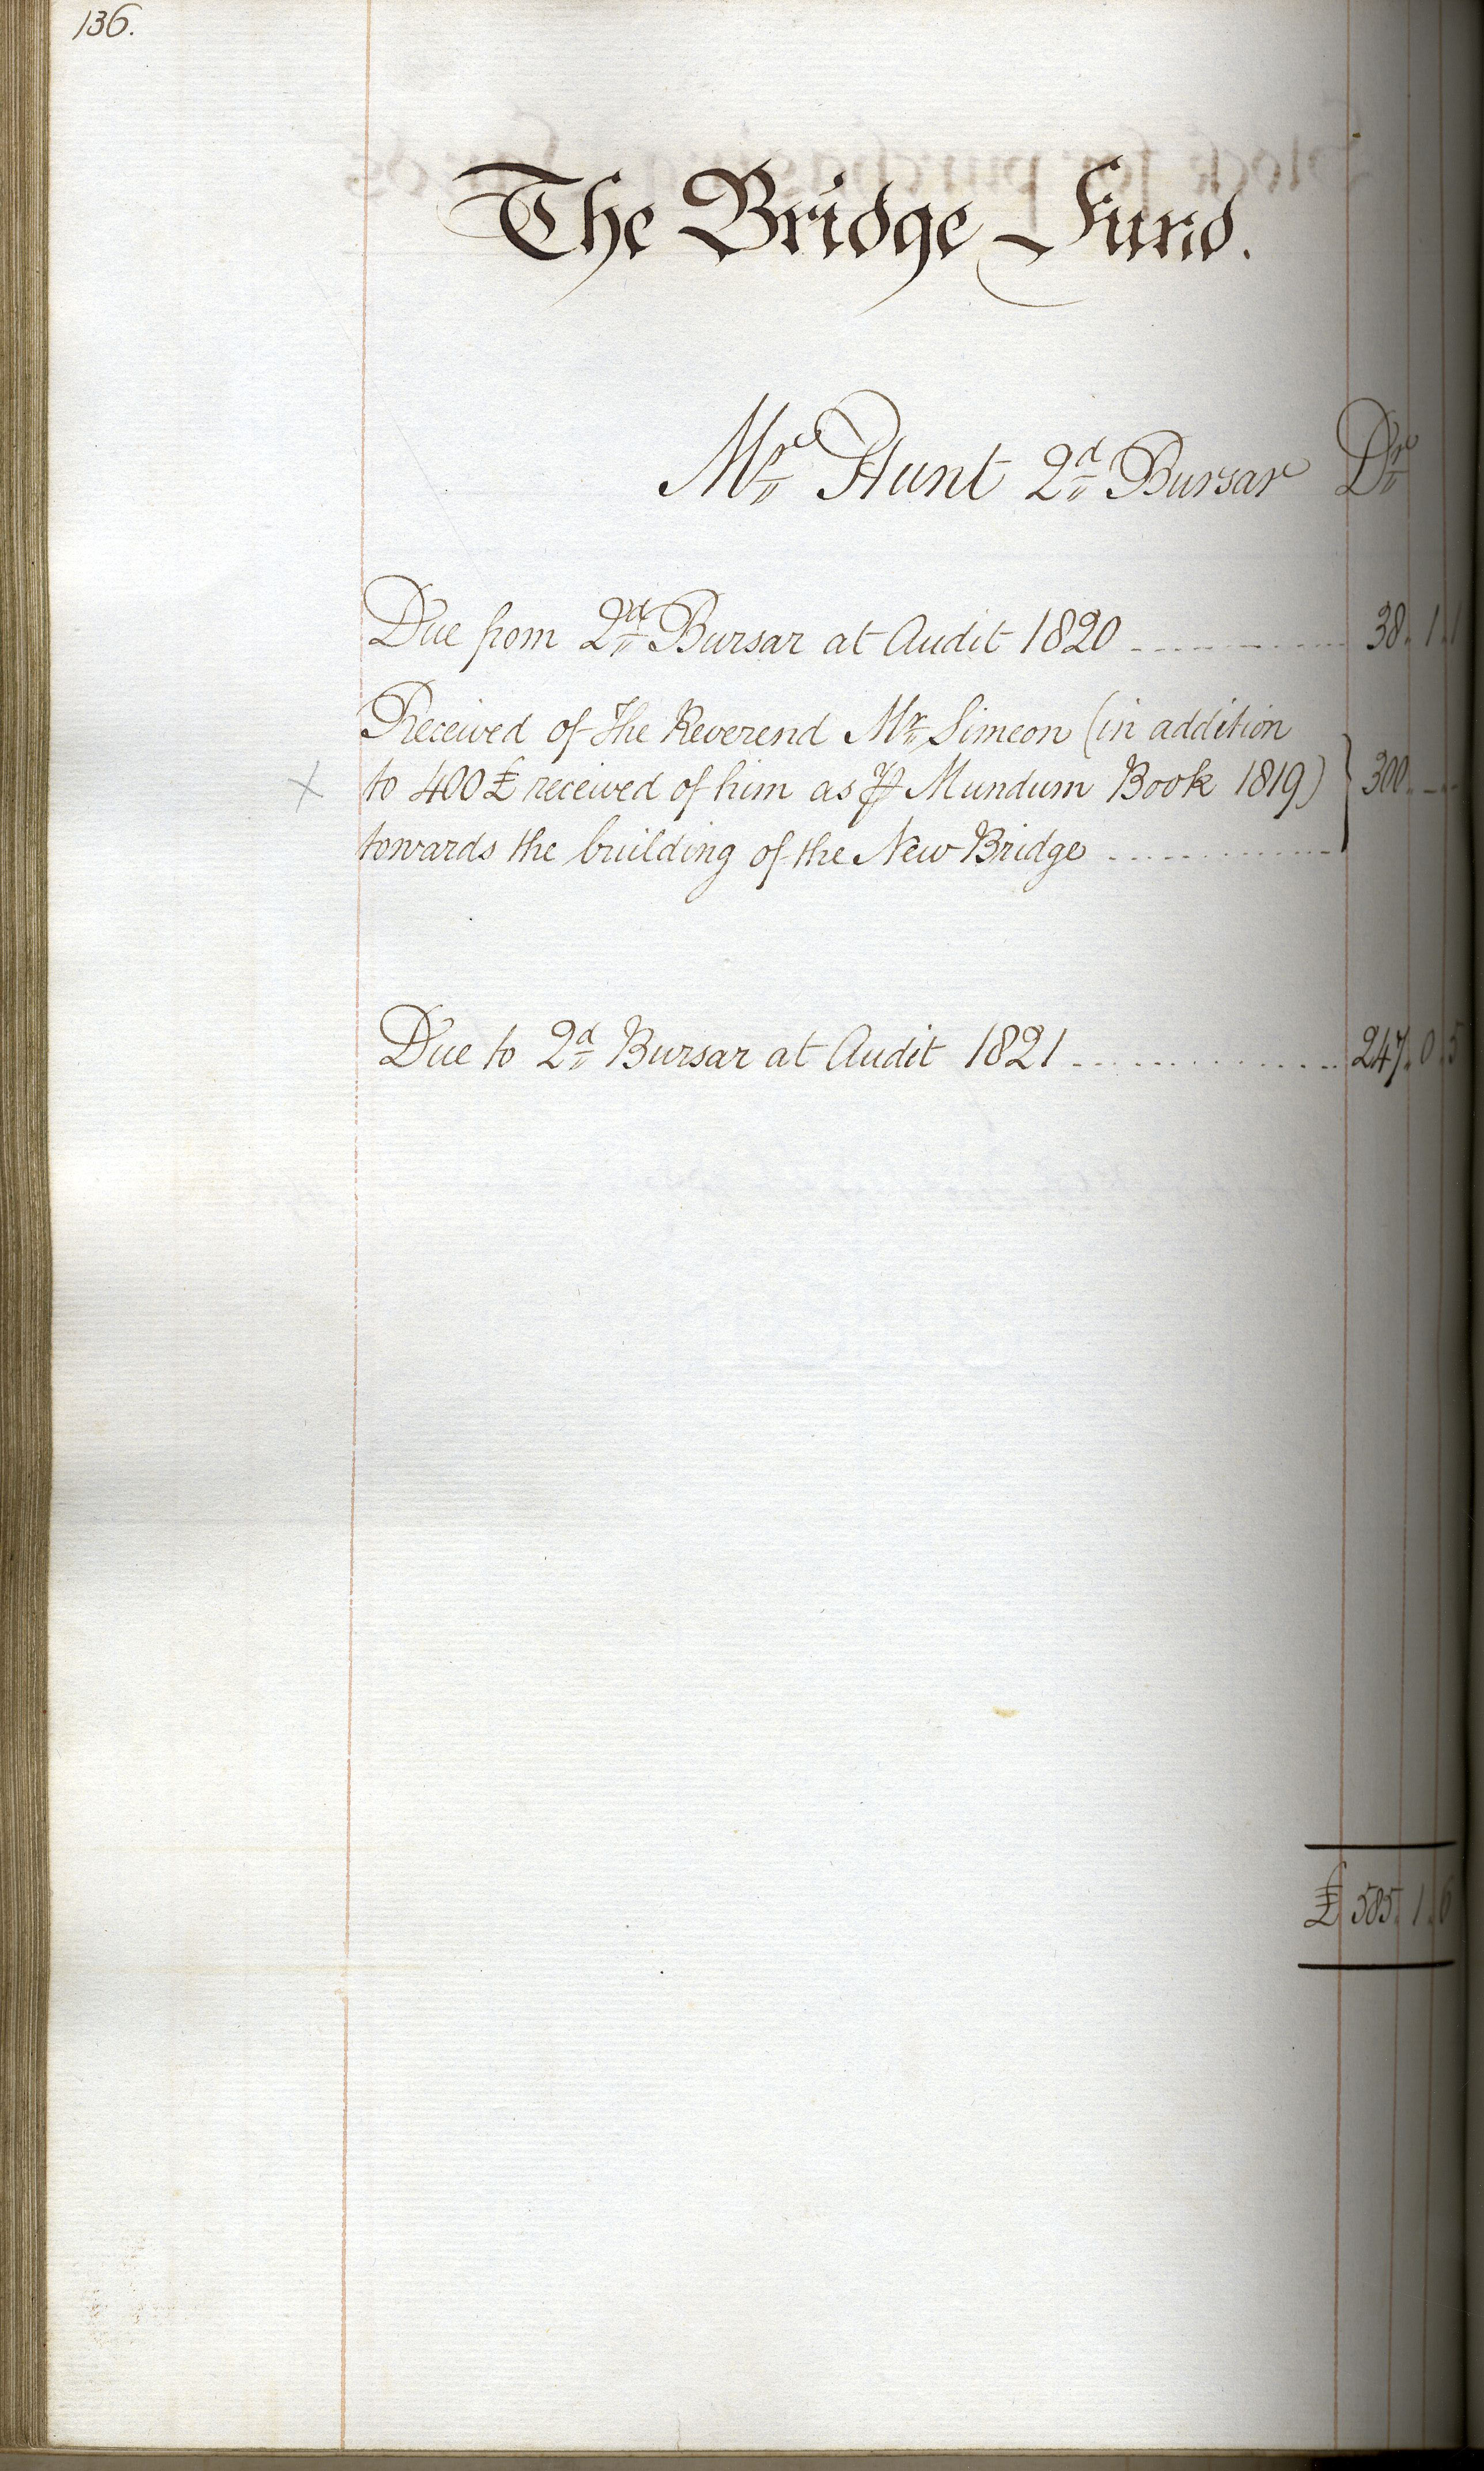 136.
The Bridge Fund.
Mr Hunt 2d Bursar Dr
Due from 2d Bursar at Audit 1820 38. 1. 1
Received of the Reverend Mr Simeon (in addition
to 400£ received of him as ⅌ Mundum Book 1819) 300. _ . _
towards the building of the New Bridge
Due to 2d Bursar at Audit 1821 247. 0. 5
£ 585. 1. 6